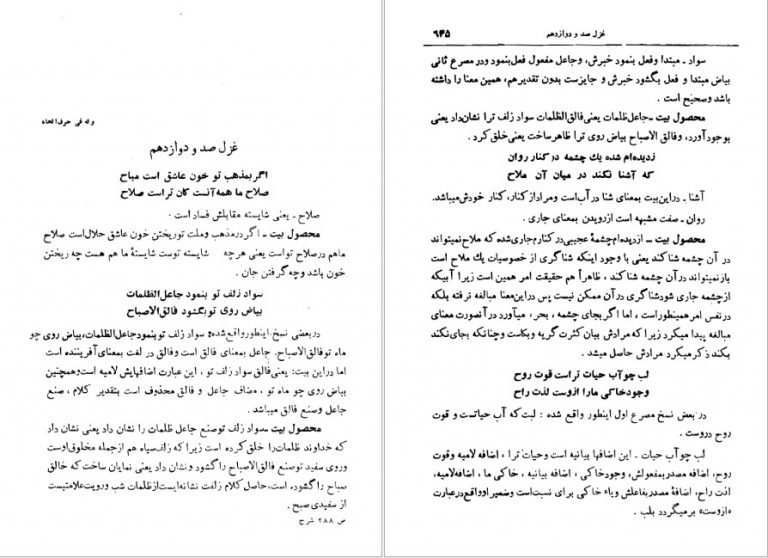 وله فی حرف الحاء
غزل صد و دوازدهم
اگر بمذهب تو خون عاشق است مباح
صلاح ما همه آنست کان تراست صلاح
صلاح ـ یعنی شایسته مقابلش فساد است .
محصول بیت ـ اگر درمذهب وملت توریختن خون عاشق حلال است صلاح
ماهم درصلاح تواست یعنی هرچه شایسته توست شایستهٔ ما هم هست چه ریختن
خون باشد وچه گرفتن جان .
سواد زلف تو بنمود جاعل الظلمات
بیاض روی تو بگشود فالق الاصباح
دربعضی نسخ، اینطور واقع شده: سواد زلف تو بنمود جاعل الظلمات، بیاض روی چو
ماه تو فالق الاصباح. جاعل بمعنای خالق است وفالق در لغت بمعنای آفریننده است
اما دراین بیت: یعنی خالق سواد زلف تو ، این عبارت اضافهایش لامیه است وهمچنین
بیاض روی چو ماه تو ، مضاف جاعل و فالق محذوف است بتقدیر کلام ، صنع
جاعل وصنع فالق میباشد .
محصول بیت ـ سواد زلف توصنع جاعل ظلمات را نشان داد یعنی نشان داد
که خداوند ظلمات را خلق کرده است زیرا که زلف سیاه هم ازجمله مخلوق اوست
وروی سفید توصنع فالق الاصباح را گشود و نشان داد یعنی نمایان ساخت که خالق
صباح را گشوده است، حاصل کلام زلفت نشانه ایست از ظلمات شب ورویت علامتیست
از سفیدی صبح .
ص ۲۸۸ شرح
غزل صد و دوازدهم ۶۴۵
سواد ـ مبتدا وفعل بنمود خبرش، وجاعل مفعول فعل بنمود ودر مصرع ثانی
بیاض مبتدا و فعل بگشود خبرش و جایزست بدون تقدیرهم، همین معنا را داشته
باشد وصحیح است .
محصول بیت ـ جاعل ظلمات یعنی فالق الظلمات سواد زلف ترا نشان داد یعنی
بوجود آورد، وفالق الاصباح بیاض روی ترا ظاهر ساخت یعنی خلق کرد .
زدیده ام شده یك چشمه در کنار روان
که آشنا نکند در میان آن ملاح
آشنا ـ دراین بیت بمعنای شنا در آب است ومراد از کنار، کنار خودش میباشد.
روان ـ صفت مشبهه است ازرویدن بمعنای جاری .
محصول بیت ـ ازدیده ام چشمهٔ عجیبی در کنارم جاری شده که ملاح نمیتواند
در آن چشمه شنا کند یعنی با وجود اینکه شناگری از خصوصیات یك ملاح است
باز نمیتواند در آن چشمه شنا کند ، ظاهراً هم حقیقت امر همین است زیرا آبیکه
از چشمه جاری شود شناگری در آن ممکن نیست پس دراین معنا مبالغه نرفته بلکه
درنفس امر همینطوراست ، اما اگر بجای چشمه ، بحر ، میآورد در آنصورت معنای
مبالغه پیدا میکرد زیرا که مرادش بیان کثرت گریه وبکاست وچنانکه بجای نکند
بکند ذکر میکرد مرادش حاصل میشد .
لب چو آب حیات تراست قوت روح
وجود خاکی ما را ازوست لذت راح
در بعض نسخ مصرع اول اینطور واقع شده : لبت که آب حیاتست و قوت
روح دروست .
لب چو آب حیات ـ این اضافها بیانیه است وحیات ترا ، اضافه لامیه وقوت
روح، اضافه مصدر بمفعولش، وجود خاکی ، اضافه بیانیه ، خاکی ما ، اضافه لامیه،
لذت راح، اضافهٔ مصدر بفاعلش ویاء خاکی برای نسبت است وضمیر او واقع در عبارت
«ازوست» برمیگردد بلب .